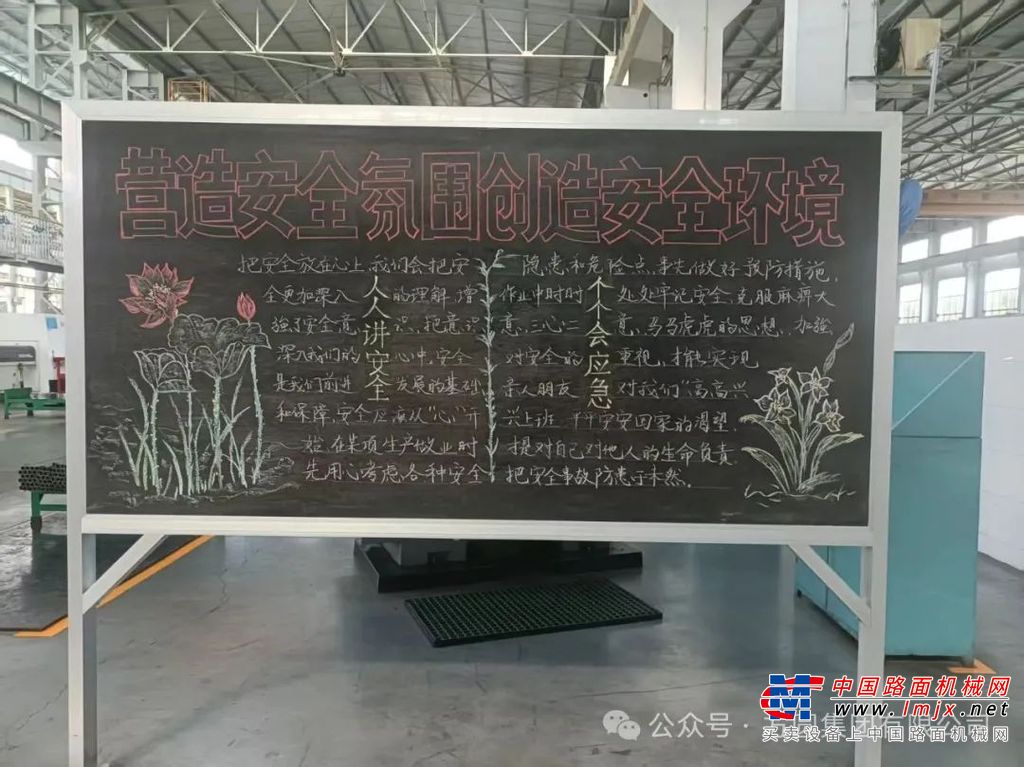 营造安全氛围创造安全环境
把安全放在心上,我们会把安
全更加深入的理解,增
强了安全意识,把意识
深入我们的心中,安全
是我们前进发展的基础
和保障,安全应该从“心”开
始,在某项生产做业时
先用心考虑各种安全
人人讲安全
隐患和危险点,事先做好预防措施,
作业中时时处处牢记安全,克服麻痹大
意、三心二意、马马虎虎的思想,加强
对安全的重视,才能实现
亲人朋友对我们“高高兴
兴上班 平平安安回家的渴望.
对自己对他人的生命负责.
把安全事故防患于未然。
个个会应急
中国路面机械网
www.lmjx.net
买卖设备上中国路面机械网
公众号 · 集团有限公司